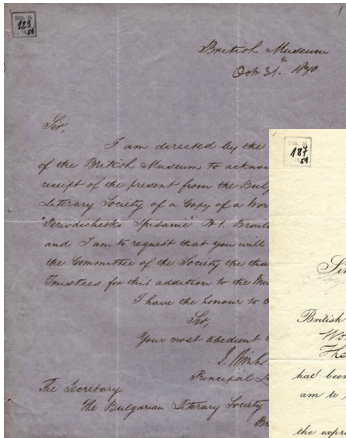 123
British Museum
Oct. 31st 1870
Sir,
I am directed by the
of the British Museum to acknow
receipt of the present from the Bulg
Literary Society of a Copy of a Wor
"Periodichesko Spisanie" No 1. Brail
and I am to request that you will
the Committee of the Society the tha
Trustees for this addition to the Mu
I have the honour to b
Sir,
Your most obedient
Principal L
The Secretary
The Bulgarian Literary Society
187
Sir
British
had been
am to
the expre